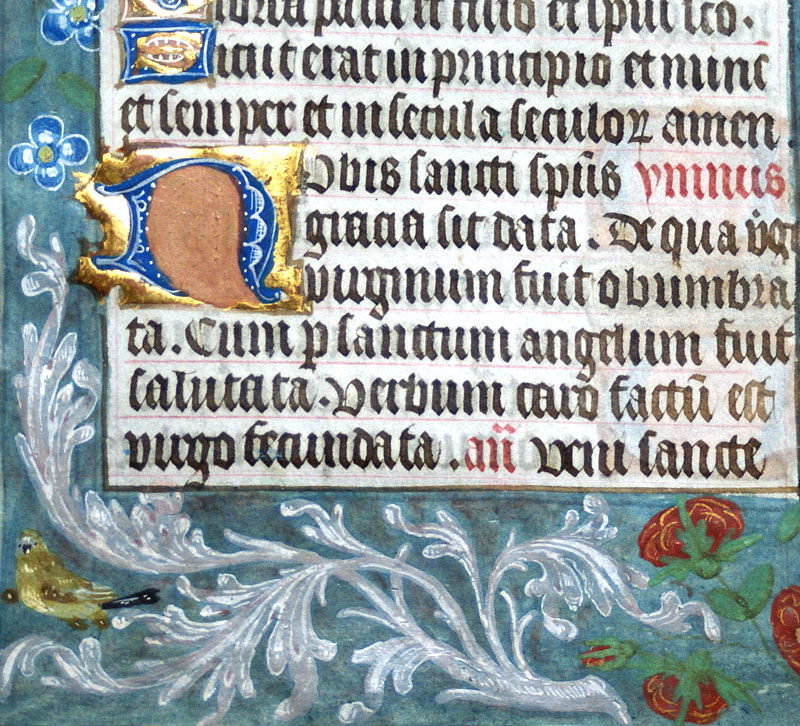 loria patri et filio et spui sco.
Sicut erat in principio et nunc
et semper et in secula seculoꝝ amen.
Nobis sancti spūs ymnus
gracia sit data. De qua v̄go
virginum fuit obumbra
ta. Cum ꝑ sanctum angelum fuit
salutata. Verbum caro factū est
virgo fecundata. an̄ Veni sancte